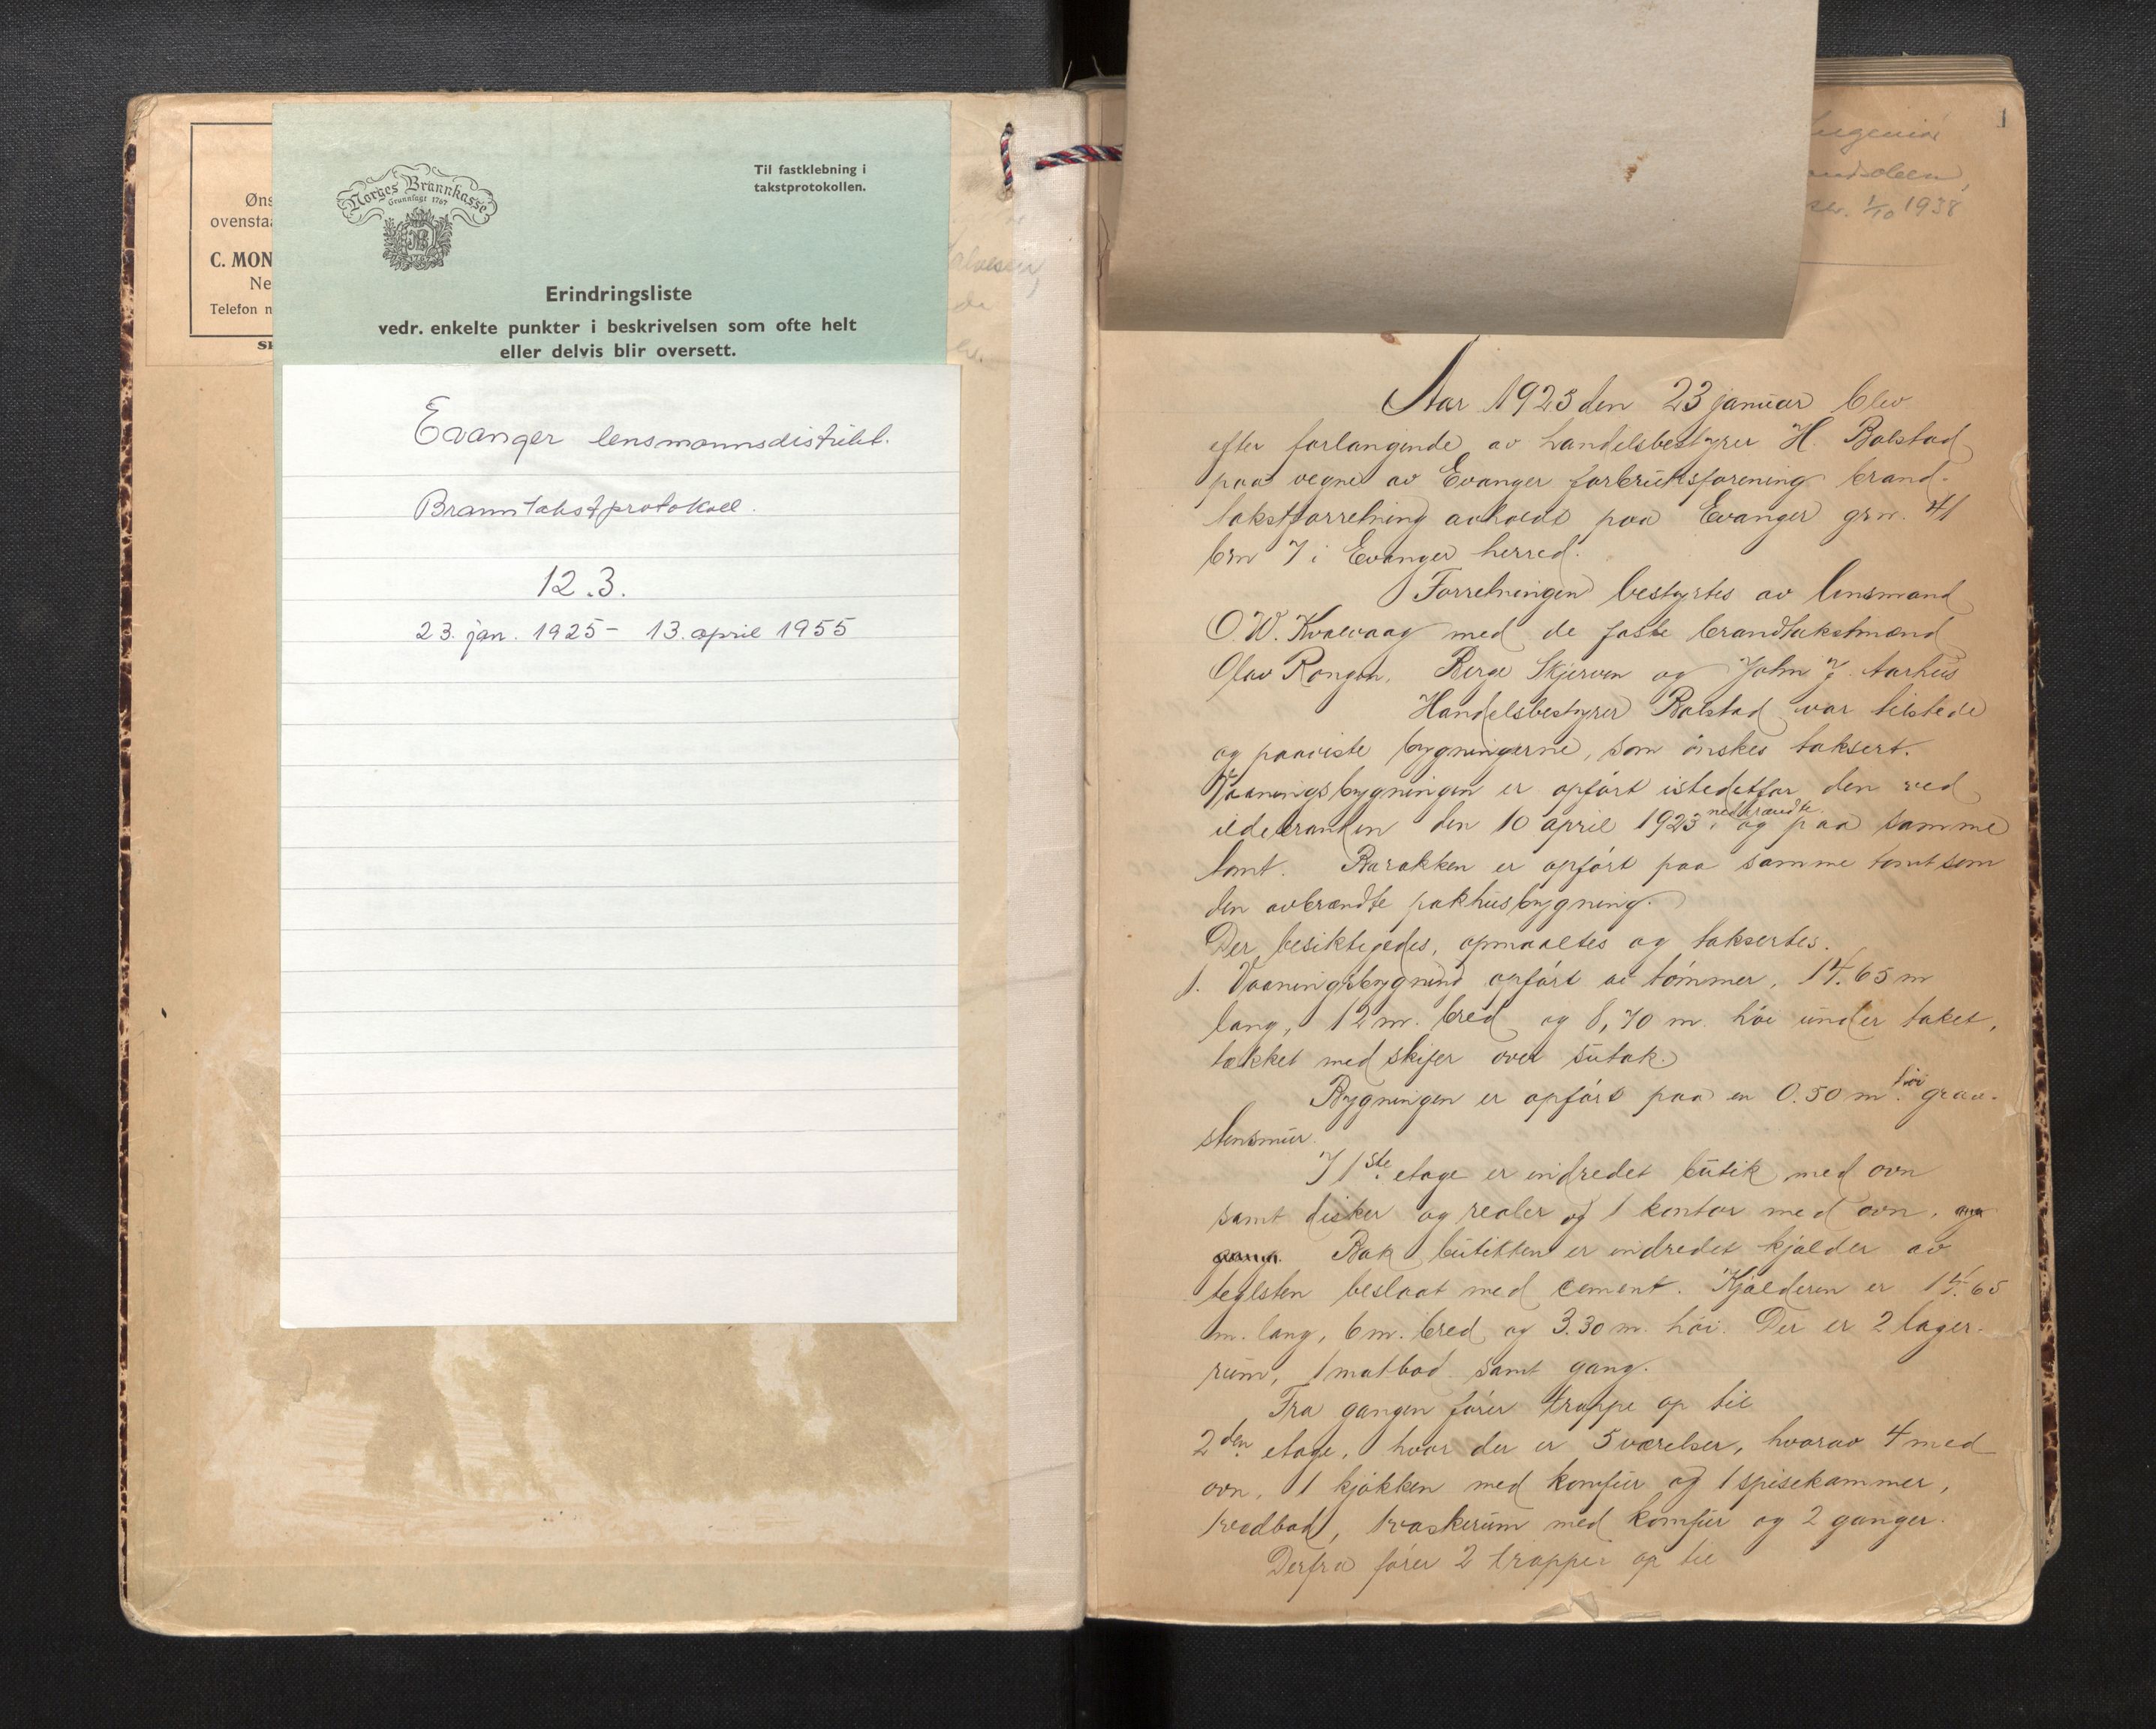 Øns
ovensta
C. MON
Ne
Telefon n
Norges Brannkasse
Grunnlagt 1767
Til fastklebning i
takstprotokollen.
Erindringsliste
vedr. enkelte punkter i beskrivelsen som ofte helt
eller delvis blir oversett.
Evanger lensmannsdistrikt.
Branntakstprotokoll.
12.3.
23. jan. 1925 - 13. april 1955
1
1/10 1938
Aar 1925 den 23 januar blev
efter forlangende av handelsbestyrer H. Bolstad
paa vegne av Evanger forbruksforening brand-
takstforretning avholdt paa Evanger grn. 41
brn 7 i Evanger herred.
Forretningen bestyrtes av lensmand
O. W. Kvalvaag med de faste brandtakstmænd
Olav Rongen, Berge Skjerven og John J. Aarhus
Handelsbestyrer Bolstad var tilstede
og paaviste bygningerne, som ønskes taksert.
Vaaningsbygningen er opført istedetfor den ved
ildebranden den 10 april 1923 nedbrændte og paa samme
tomt. Barakken er opført paa samme tomt som
den avbrændte pakhusbygning.
Der besiktigedes, opmaaltes og taksertes.
1. Vaaningsbygning opført av tømmer, 14.65 m
lang, 12 m. bred og 8,70 m. høi under taket,
tækket med skifer over sutak.
Bygningen er opført paa en 0.50 m. høi graa-
stensmur.
I 1ste etage er indredet butik med ovn
samt disker og reoler og 1 kontor med ovn,
Bak butikken er indredet kjælder av
teglsten beslaat med cement. Kjælderen er 14.65
m. lang, 6 m. bred og 3.30 m. høi. Der er 2 lager-
rum, 1 matbod samt gang.
Fra gangen fører trappe op til
2den etage, hvor der er 5 værelser, hvorav 4 med
ovn, 1 kjøkken med komfur og 1 spisekammer,
1 vedbod, 1 vaskerum med komfur og 2 ganger.
Derfra fører 2 trapper op til